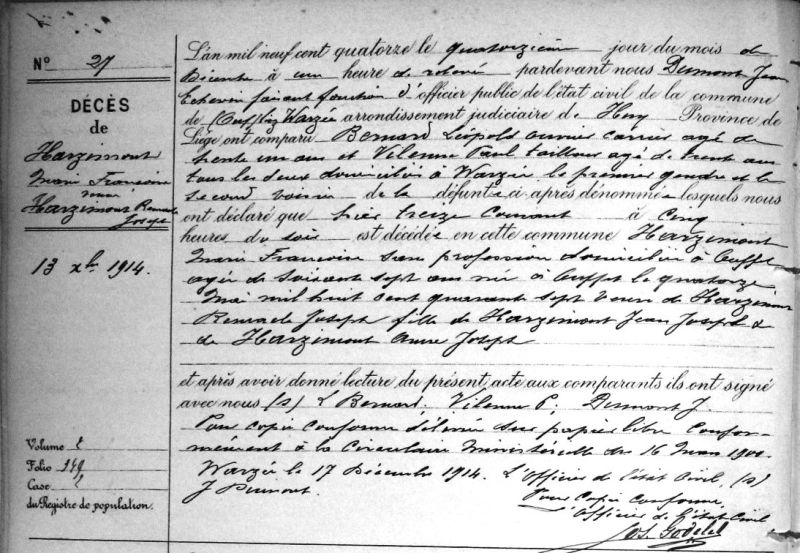 N° 27
DÉCÈS
de
Harzimont
Marie Françoise
veuve
Harzimont Remacle
Joseph
13 xbre 1914.
Volume
Folio 149
Case
du Registre de population.
L'an mil neuf cent quatorze le quatorzième jour du mois de
Décembre à une heure de relevée pardevant nous Dumont Jean
Echevin faisant fonction d'officier public de l'état civil de la commune
de Warzée arrondissement judiciaire de Huy Province de
Liège ont comparu Bernard Léopold ouvrier carrier agé de
trente un ans et Vilenne Paul tailleur agé de trente ans
tous les deux domiciliés à Warzée le premier gendre et le
second voisin de la défunte ci-après dénommée lesquels nous
ont déclaré que hier treize Courant à Cinq
heures du soir est décédée en cette commune Harzimont
Marie Françoise sans profession domiciliée à Ouffet
agée de soixante sept ans née à Ouffet le quatorze
Mai mil huit cent quarante sept veuve de Harzimont
Remacle Joseph fille de Harzimont Jean Joseph &
de Harzimont Anne Joseph
et après avoir donné lecture du présent acte aux comparants ils ont signé
avec nous (s) L Bernard, Vilenne P, Dumont J.
Pour copie conforme délivrée sur papier libre Confor-
mément à la Circulaire Ministérielle du 16 1900.
Warzée le 17 Décembre 1914. L'Officier de l'état Civil, (s)
J Dumont.
Pour Copie Conforme,
L'Officier de l'état Civil
Jos.